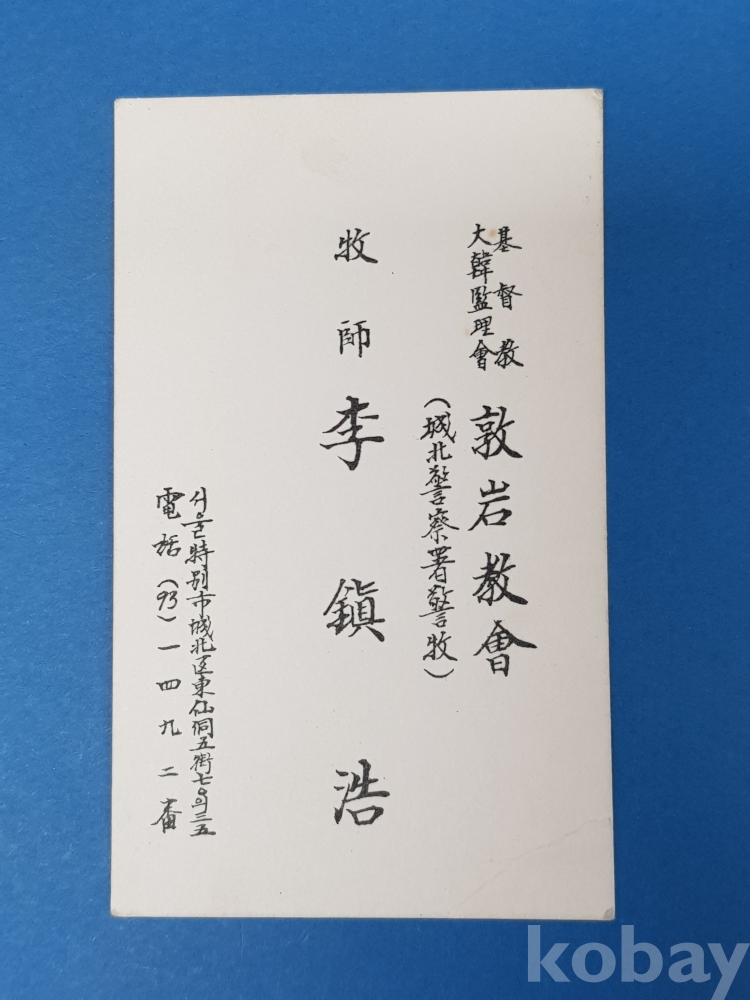 基督教
大韓監理會
敦岩教會
(城北警察署警牧)
牧師 李鎭浩
서울特別市城北区東仙洞五街七의三五
電話(93)一四九二番
kobay